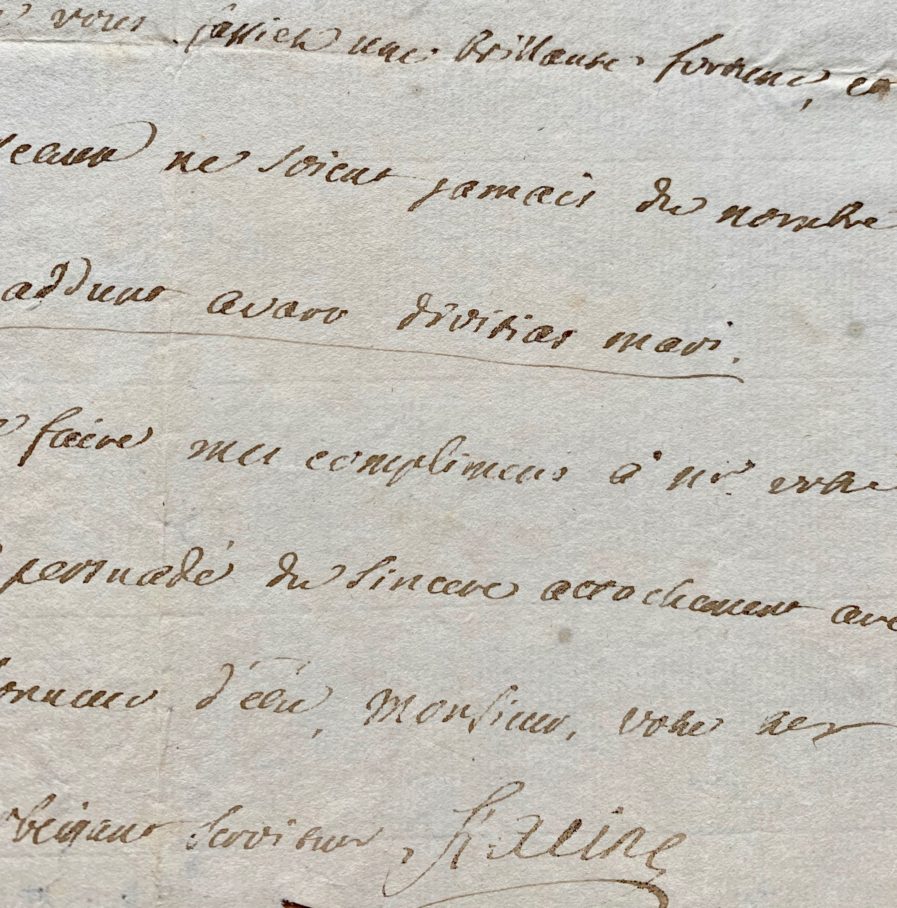 vous fassiez une brillante fortune, et
ne soient jamais du nombre
addunt avaro divitias mari.
faire mes complimens à mr. votre
persuadé du sincere attachement avec
d'être, Monsieur, votre tres
obeissant serviteur